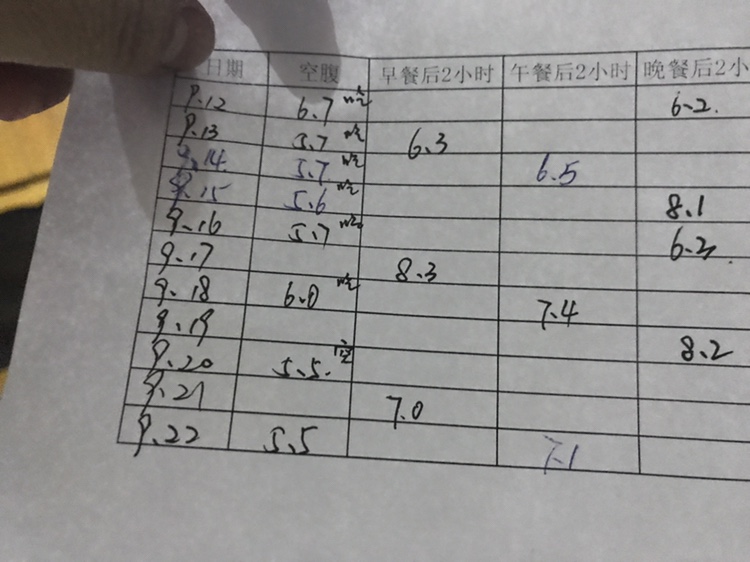 日期 空腹 早餐后2小时 午餐后2小时 晚餐后2小
9.12 6.7 6.2.
9.13 5.7 6.3
9.14. 5.7 6.5
9.15 5.6 8.1
9.16 5.7 6.2
9.17 8.3
9.18 6.0 7.4
9.19 8.2
9.20 5.5.
9.21 7.0
9.22 5.5 7.1